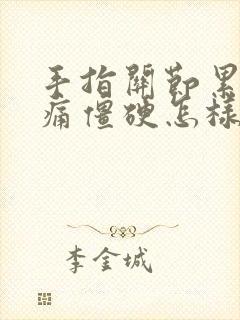 手指關節累
痛僵硬怎樣
李金城